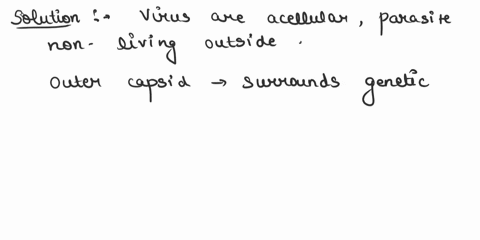 Solution :- Virus are acellular, parasite
non-living outside.
outer capsid → surrounds genetic